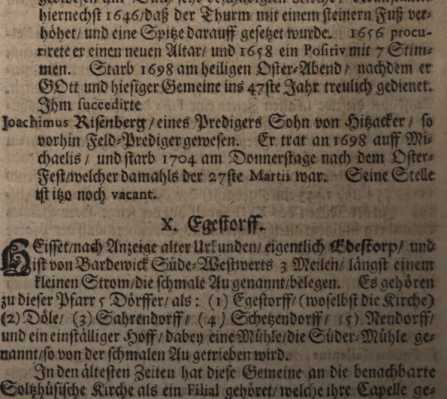 hiernechst 1646/daß der Thurm mit einem steinern Fuß ver-
höhet/ und eine Spitze darauff gesetzet wurde. 1656 procu-
rirete er einen neuen Altar/ und 1658 ein Positiv mit 7 Stim-
men. Starb 1698 am heiligen Oster-Abend/ nachdem er
GOtt und hiesiger Gemeine ins 47ste Jahr treulich gedienet.
Ihm succedirte
Joachimus Risenberg/ eines Predigers Sohn von Hitzacker/ so
vorhin Feld-Prediger gewesen. Er trat an 1698 auff Mi-
chaelis/ und starb 1704 am Donnerstage nach dem Oster-
Fest/welcher damahls der 27ste Martii war. Seine Stelle
ist itzo noch vacant.
X. Egestorff.
HEisset/nach Anzeige alter Urkunden/ eigentlich Edestorp/ und
ist von Bardewick Süde-Westwerts 3 Meilen/ längst einem
kleinen Strom/die schmale Au genannt/belegen. Es gehören
zu dieser Pfarr 5 Dörffer/ als: (1) Egestorff/ (woselbst die Kirche)
(2) Döle/ (3) Sahrendorff/ (4) Schetzendorff/ (5) Nendorff/
und ein einställiger Hoff/ dabey eine Mühle/die Süder-Mühle ge-
nannt/so von der schmalen Au getrieben wird.
In den ältesten Zeiten hat diese Gemeine an die benachbarte
Soltzhüsische Kirche als ein Filial gehöret/ welche ihre Capelle ge-